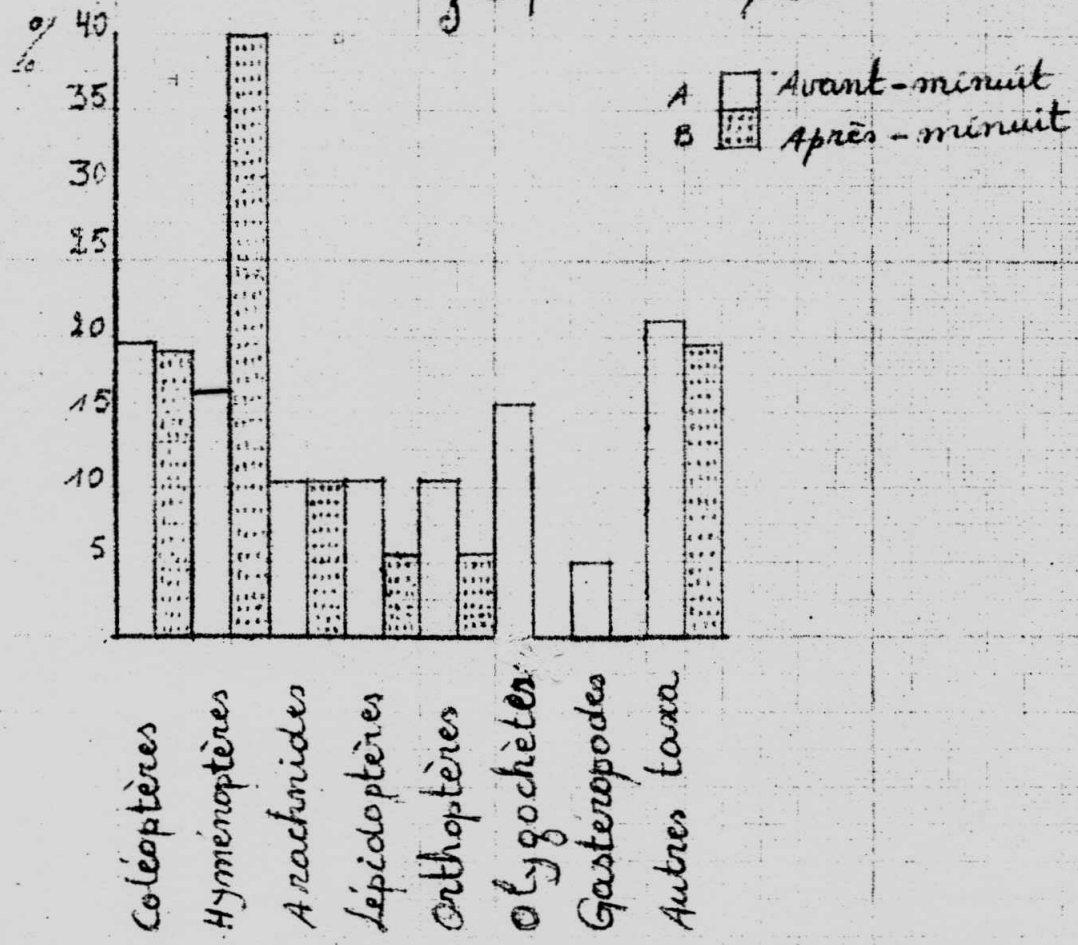 %
40
35
30
25
20
15
10
5
A Avant-minuit
B Après-minuit
Coléoptères
Hyménoptères
Arachnides
Lépidoptères
Orthoptères
Olygochètes
Gastéropodes
Autres taxa